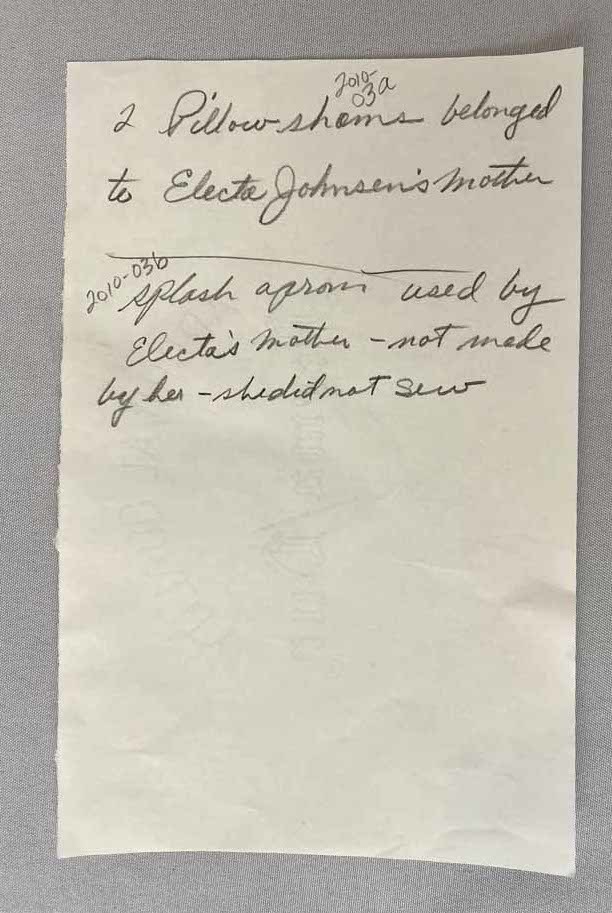 2010-
03a
2 Pillow shams belonged
to Electa Johnsen's mother
2010-03b
splash apron used by
Electa's mother - not made
by her - she did not sew